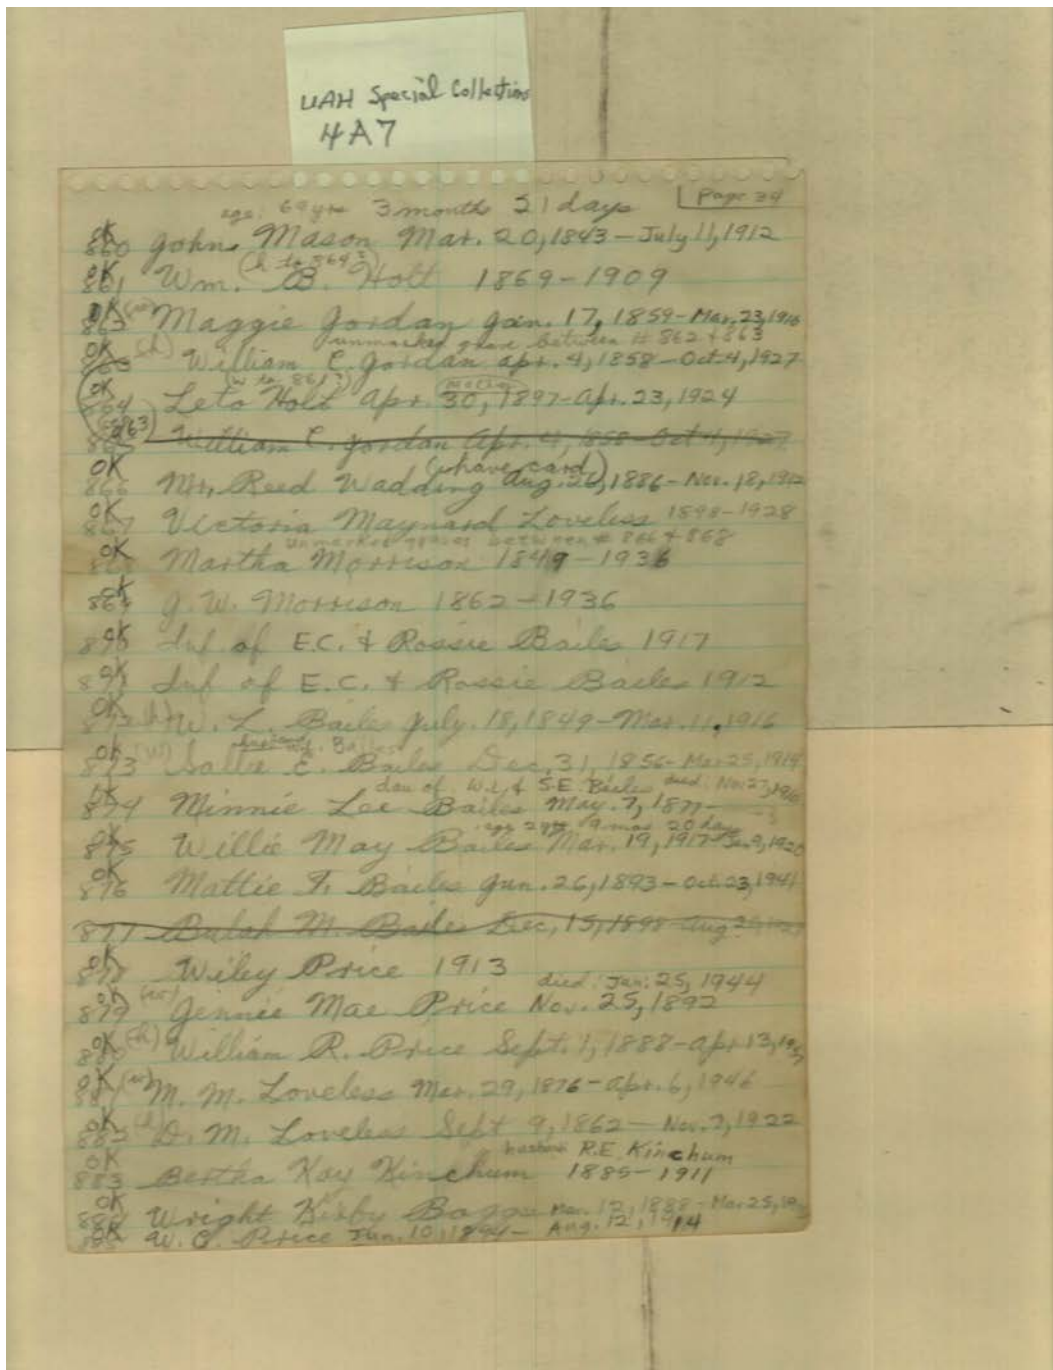 UAH Special Collections
4A7
Page 34
age: 69 yrs 3 month 21 days
OK 860 John Mason Mar. 20, 1843 - July 11, 1912
(h to 864?)
OK 861 Wm. B. Holt 1869-1909
OK 862 (w) Maggie Jordan Jan. 17, 1859 - Mar. 23, 1916
unmarked grave between # 862 & 863
OK 863 (h) William C. Jordan Apr. 4, 1858 - Oct. 4, 1927
(w to 861?) mother
OK 864 Leto Holt Apr. 30, 1897 - Apr. 23, 1924
(863) 865 William C. Jordan Apr. 4, 1858 - Oct 4, 1927
(have card)
OK 866 Mr. Reed Wadding Aug. 26, 1886 - Nov. 18, 1912
OK 867 Victoria Maynard Loveless 1898-1928
unmarked graves between # 866 & 868
OK 868 Martha Morrison 1849-1936
OK 869 J. W. Morrison 1862-1936
OK 870 Inf of E.C. & Rossie Bailes 1917
OK 871 Inf of E.C. & Rossie Bailes 1912
OK 872 (h) W. L. Bailes July. 18, 1849 - Mar. 11, 1916
husband W.L. Bailes
OK 873 (w) Sallie E. Bailes Dec, 31, 1856 - Mar 25, 1919
dau of W.L. & S.E. Bailes died: Nov 27,
OK 874 Minnie Lee Bailes May. 7, 1877
age 2 yrs 9 mos 20 days
OK 875 Willie May Bailes Mar. 19, 1917 - Jan. 9, 1920
OK 876 Mattie F. Bailes Jun. 26, 1893 - Oct. 23, 1941
877 Bulah M. Bailes Dec, 15, 1898 Aug
OK 878 Wiley Price 1913
died: Jan: 25, 1944
OK 879 (w) Jennie Mae Price Nov. 25, 1892
OK 880 (h) William R. Price Sept. 1, 1888 - Apr. 13,
OK 881 (w) M. M. Loveless Mar. 29, 1876 - Apr. 6, 1946
OK 882 D. M. Loveless Sept 9, 1862 - Nov. 7, 1922
husband R.E. Kinchum
OK 883 Bertha Kay Kinchum 1885-1911
OK 884 Wright Kirby Boggs Mar. 12, 1888 - Mar 25,
OK 885 W. O. Price Jun. 10, 1894 - Aug. 12, 1914